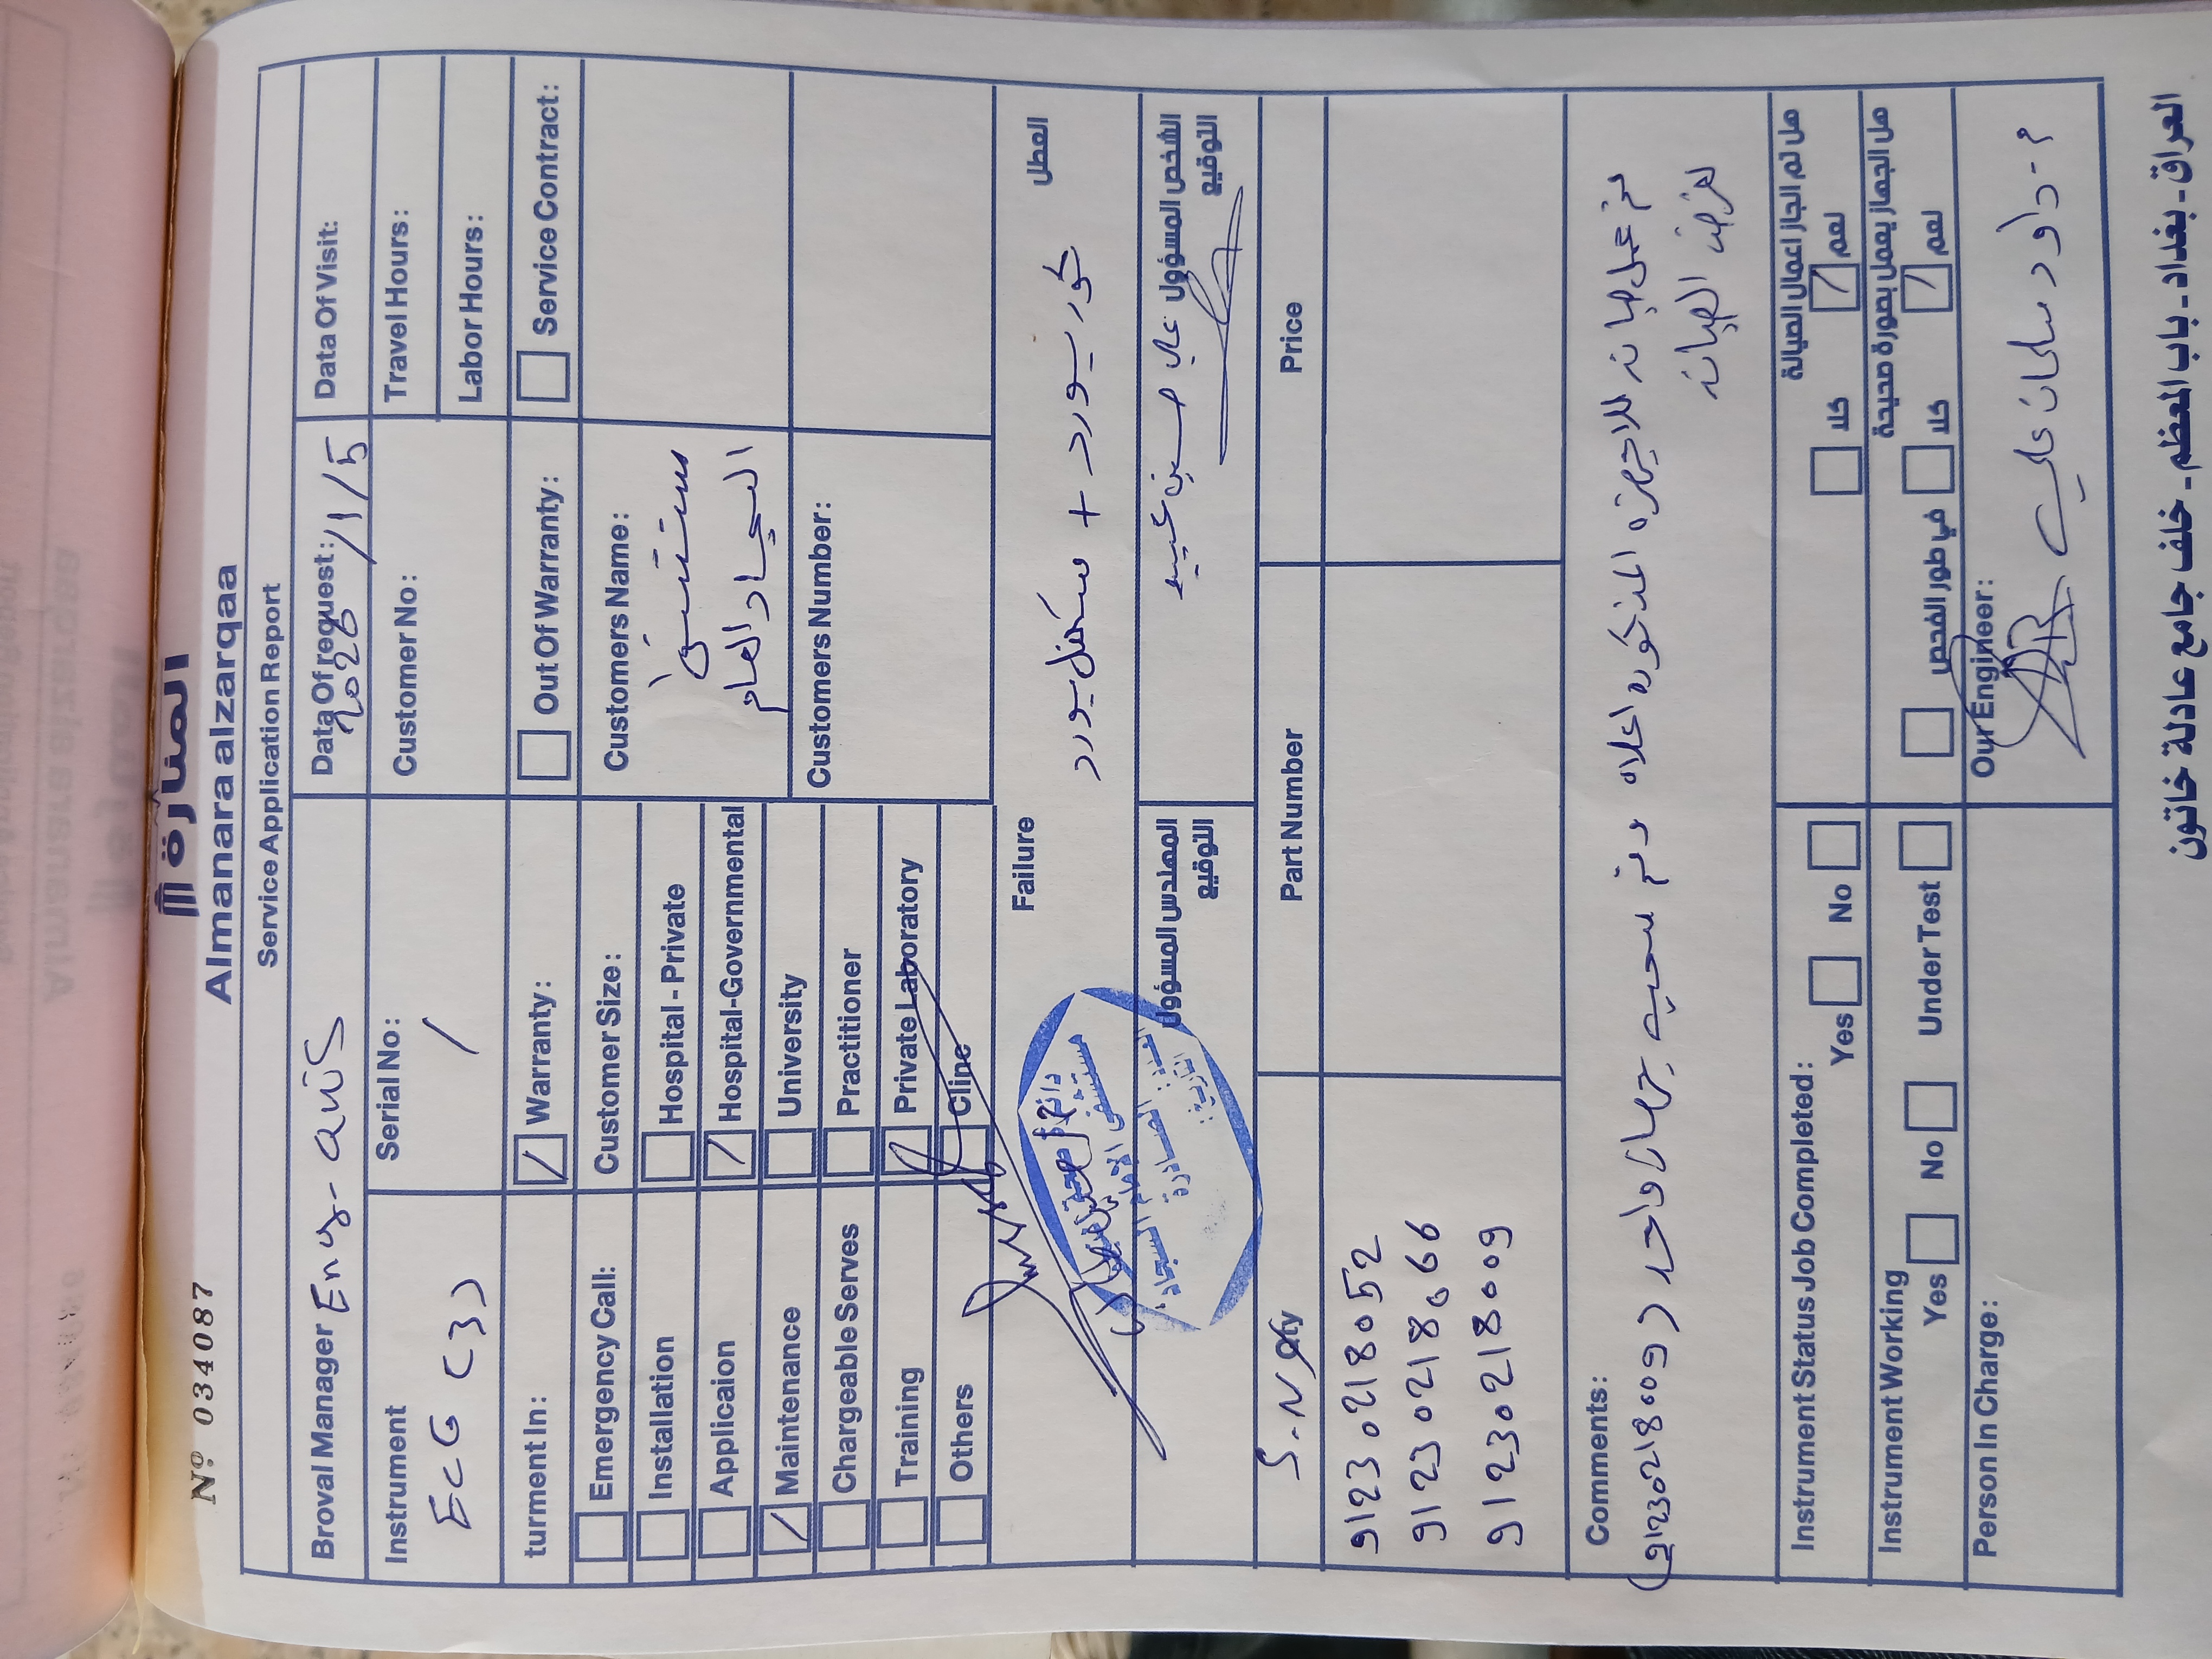 Nº 034087
المنارة
Almanara alzarqaa
Service Application Report
Broval Manager Eng- انس
Data Of request: 2026/1/5
Data Of Visit:
Instrument
ECG (3)
Serial No:
/
Customer No:
Travel Hours:
Labor Hours:
turment In:
Warranty:
Out Of Warranty:
Service Contract:
Emergency Call:
Installation
Applicaion
Maintenance
Chargeable Serves
Training
Others
Customer Size:
Hospital - Private
Hospital-Governmental
University
Practitioner
Private Laboratory
Cline
Customers Name:
مستشفى
السجاد العام
Customers Number:
Failure
العطل
كور بورد + سكنل بورد
مستشفى الامام السجاد
العدد:
الصادرة
التاريخ:
المهندس المسؤول
التوقيع
الشخص المسؤول علي حسين عبيد
التوقيع
S.N Qty
Part Number
Price
91230218052
91230218066
91230218009
Comments:
تم عمل صيانه للاجهزه المذكوره اعلاه وتم سحب جهاز واحد (91230218009)
لغرض الصيانه
Instrument Status Job Completed:
Yes
No
هل تم الجاز اعمال الصيالة
كلا
لعم
Instrument Working
Yes
No
Under Test
هل الجهاز يعمل بصورة صحيحة
في طور الفحص
كلا
لعم
Person In Charge:
Our Engineer:
م. داود سلمان علي
العراق - بغداد - باب المعظم - خلف جامع عادلة خاتون